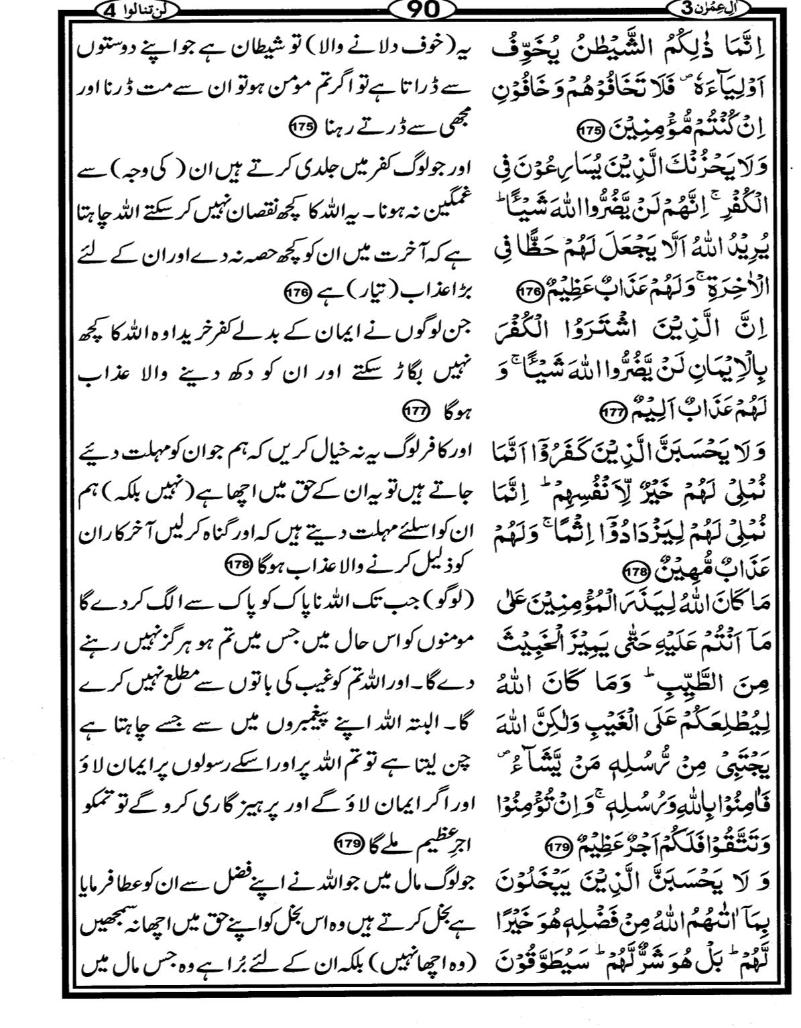 اٰلِ عِمْرٰن 3
90
لَنْ تَنَالُوا 4
اِنَّمَا ذٰلِكُمُ الشَّيْطٰنُ يُخَوِّفُ
اَوْلِيَآءَهٗ ۪ فَلَا تَخَافُوْهُمْ وَخَافُوْنِ
اِنْ كُنْتُمْ مُّؤْمِنِيْنَ 175
وَلَا يَحْزُنْكَ الَّذِيْنَ يُسَارِعُوْنَ فِى
الْكُفْرِ ۚ اِنَّهُمْ لَنْ يَّضُرُّوا اللّٰهَ شَيْـًٔا ؕ
يُرِيْدُ اللّٰهُ اَلَّا يَجْعَلَ لَهُمْ حَظًّا فِى
الْاٰخِرَةِ ۚ وَلَهُمْ عَذَابٌ عَظِيْمٌ 176
اِنَّ الَّذِيْنَ اشْتَرَوُا الْكُفْرَ
بِالْاِيْمَانِ لَنْ يَّضُرُّوا اللّٰهَ شَيْـًٔا ۚ وَ
لَهُمْ عَذَابٌ اَلِيْمٌ 177
وَلَا يَحْسَبَنَّ الَّذِيْنَ كَفَرُوْٓا اَنَّمَا
نُمْلِىْ لَهُمْ خَيْرٌ لِّاَنْفُسِهِمْ ؕ اِنَّمَا
نُمْلِىْ لَهُمْ لِيَزْدَادُوْٓا اِثْمًا ۚ وَلَهُمْ
عَذَابٌ مُّهِيْنٌ 178
مَا كَانَ اللّٰهُ لِيَذَرَ الْمُؤْمِنِيْنَ عَلٰى
مَآ اَنْتُمْ عَلَيْهِ حَتّٰى يَمِيْزَ الْخَبِيْثَ
مِنَ الطَّيِّبِ ؕ وَمَا كَانَ اللّٰهُ
لِيُطْلِعَكُمْ عَلَى الْغَيْبِ وَلٰكِنَّ اللّٰهَ
يَجْتَبِىْ مِنْ رُّسُلِهٖ مَنْ يَّشَآءُ ۪
فَاٰمِنُوْا بِاللّٰهِ وَرُسُلِهٖ ۚ وَاِنْ تُؤْمِنُوْا
وَتَتَّقُوْا فَلَكُمْ اَجْرٌ عَظِيْمٌ 179
وَ لَا يَحْسَبَنَّ الَّذِيْنَ يَبْخَلُوْنَ
بِمَآ اٰتٰىهُمُ اللّٰهُ مِنْ فَضْلِهٖ هُوَ خَيْرًا
لَّهُمْ ؕ بَلْ هُوَ شَرٌّ لَّهُمْ ؕ سَيُطَوَّقُوْنَ
یہ (خوف دلانے والا) تو شیطان ہے جو اپنے دوستوں
سے ڈراتا ہے تو اگر تم مومن ہو تو ان سے مت ڈرنا اور
مجھی سے ڈرتے رہنا 175
اور جو لوگ کفر میں جلدی کرتے ہیں ان (کی وجہ) سے
غمگین نہ ہونا۔ یہ اللہ کا کچھ نقصان نہیں کر سکتے اللہ چاہتا
ہے کہ آخرت میں ان کو کچھ حصہ نہ دے اور ان کے لئے
بڑا عذاب (تیار) ہے 176
جن لوگوں نے ایمان کے بدلے کفر خریدا وہ اللہ کا کچھ
نہیں بگاڑ سکتے اور ان کو دکھ دینے والا عذاب
ہوگا 177
اور کافر لوگ یہ نہ خیال کریں کہ ہم جو ان کو مہلت دیئے
جاتے ہیں تو یہ ان کے حق میں اچھا ہے (نہیں بلکہ) ہم
ان کو اسلئے مہلت دیتے ہیں کہ اور گناہ کرلیں آخرکار ان
کو ذلیل کرنے والا عذاب ہوگا 178
(لوگو) جب تک اللہ ناپاک کو پاک سے الگ کر دے گا
مومنوں کو اس حال میں جس میں تم ہو ہرگز نہیں رہنے
دے گا۔ اور اللہ تم کو غیب کی باتوں سے مطلع نہیں کرے
گا۔ البتہ اللہ اپنے پیغمبروں میں سے جسے چاہتا ہے
چن لیتا ہے تو تم اللہ پر اور اسکے رسولوں پر ایمان لاؤ
اور اگر ایمان لاؤ گے اور پرہیزگاری کرو گے تو تمکو
اجرِ عظیم ملے گا 179
جو لوگ مال میں جو اللہ نے اپنے فضل سے ان کو عطا فرمایا
ہے بخل کرتے ہیں وہ اس بخل کو اپنے حق میں اچھا نہ سمجھیں
(وہ اچھا نہیں) بلکہ ان کے لئے بُرا ہے وہ جس مال میں